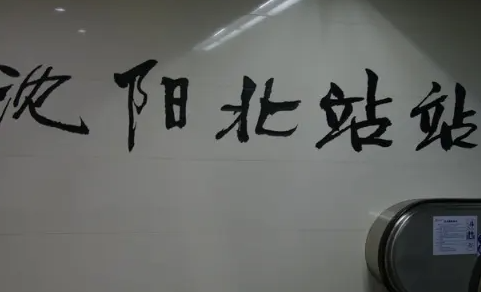 沈阳北站站